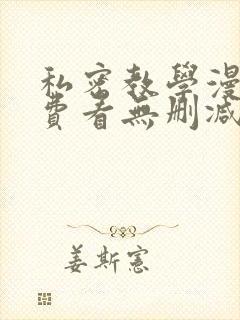 私密教學漫
費看無刪減
姜斯憲